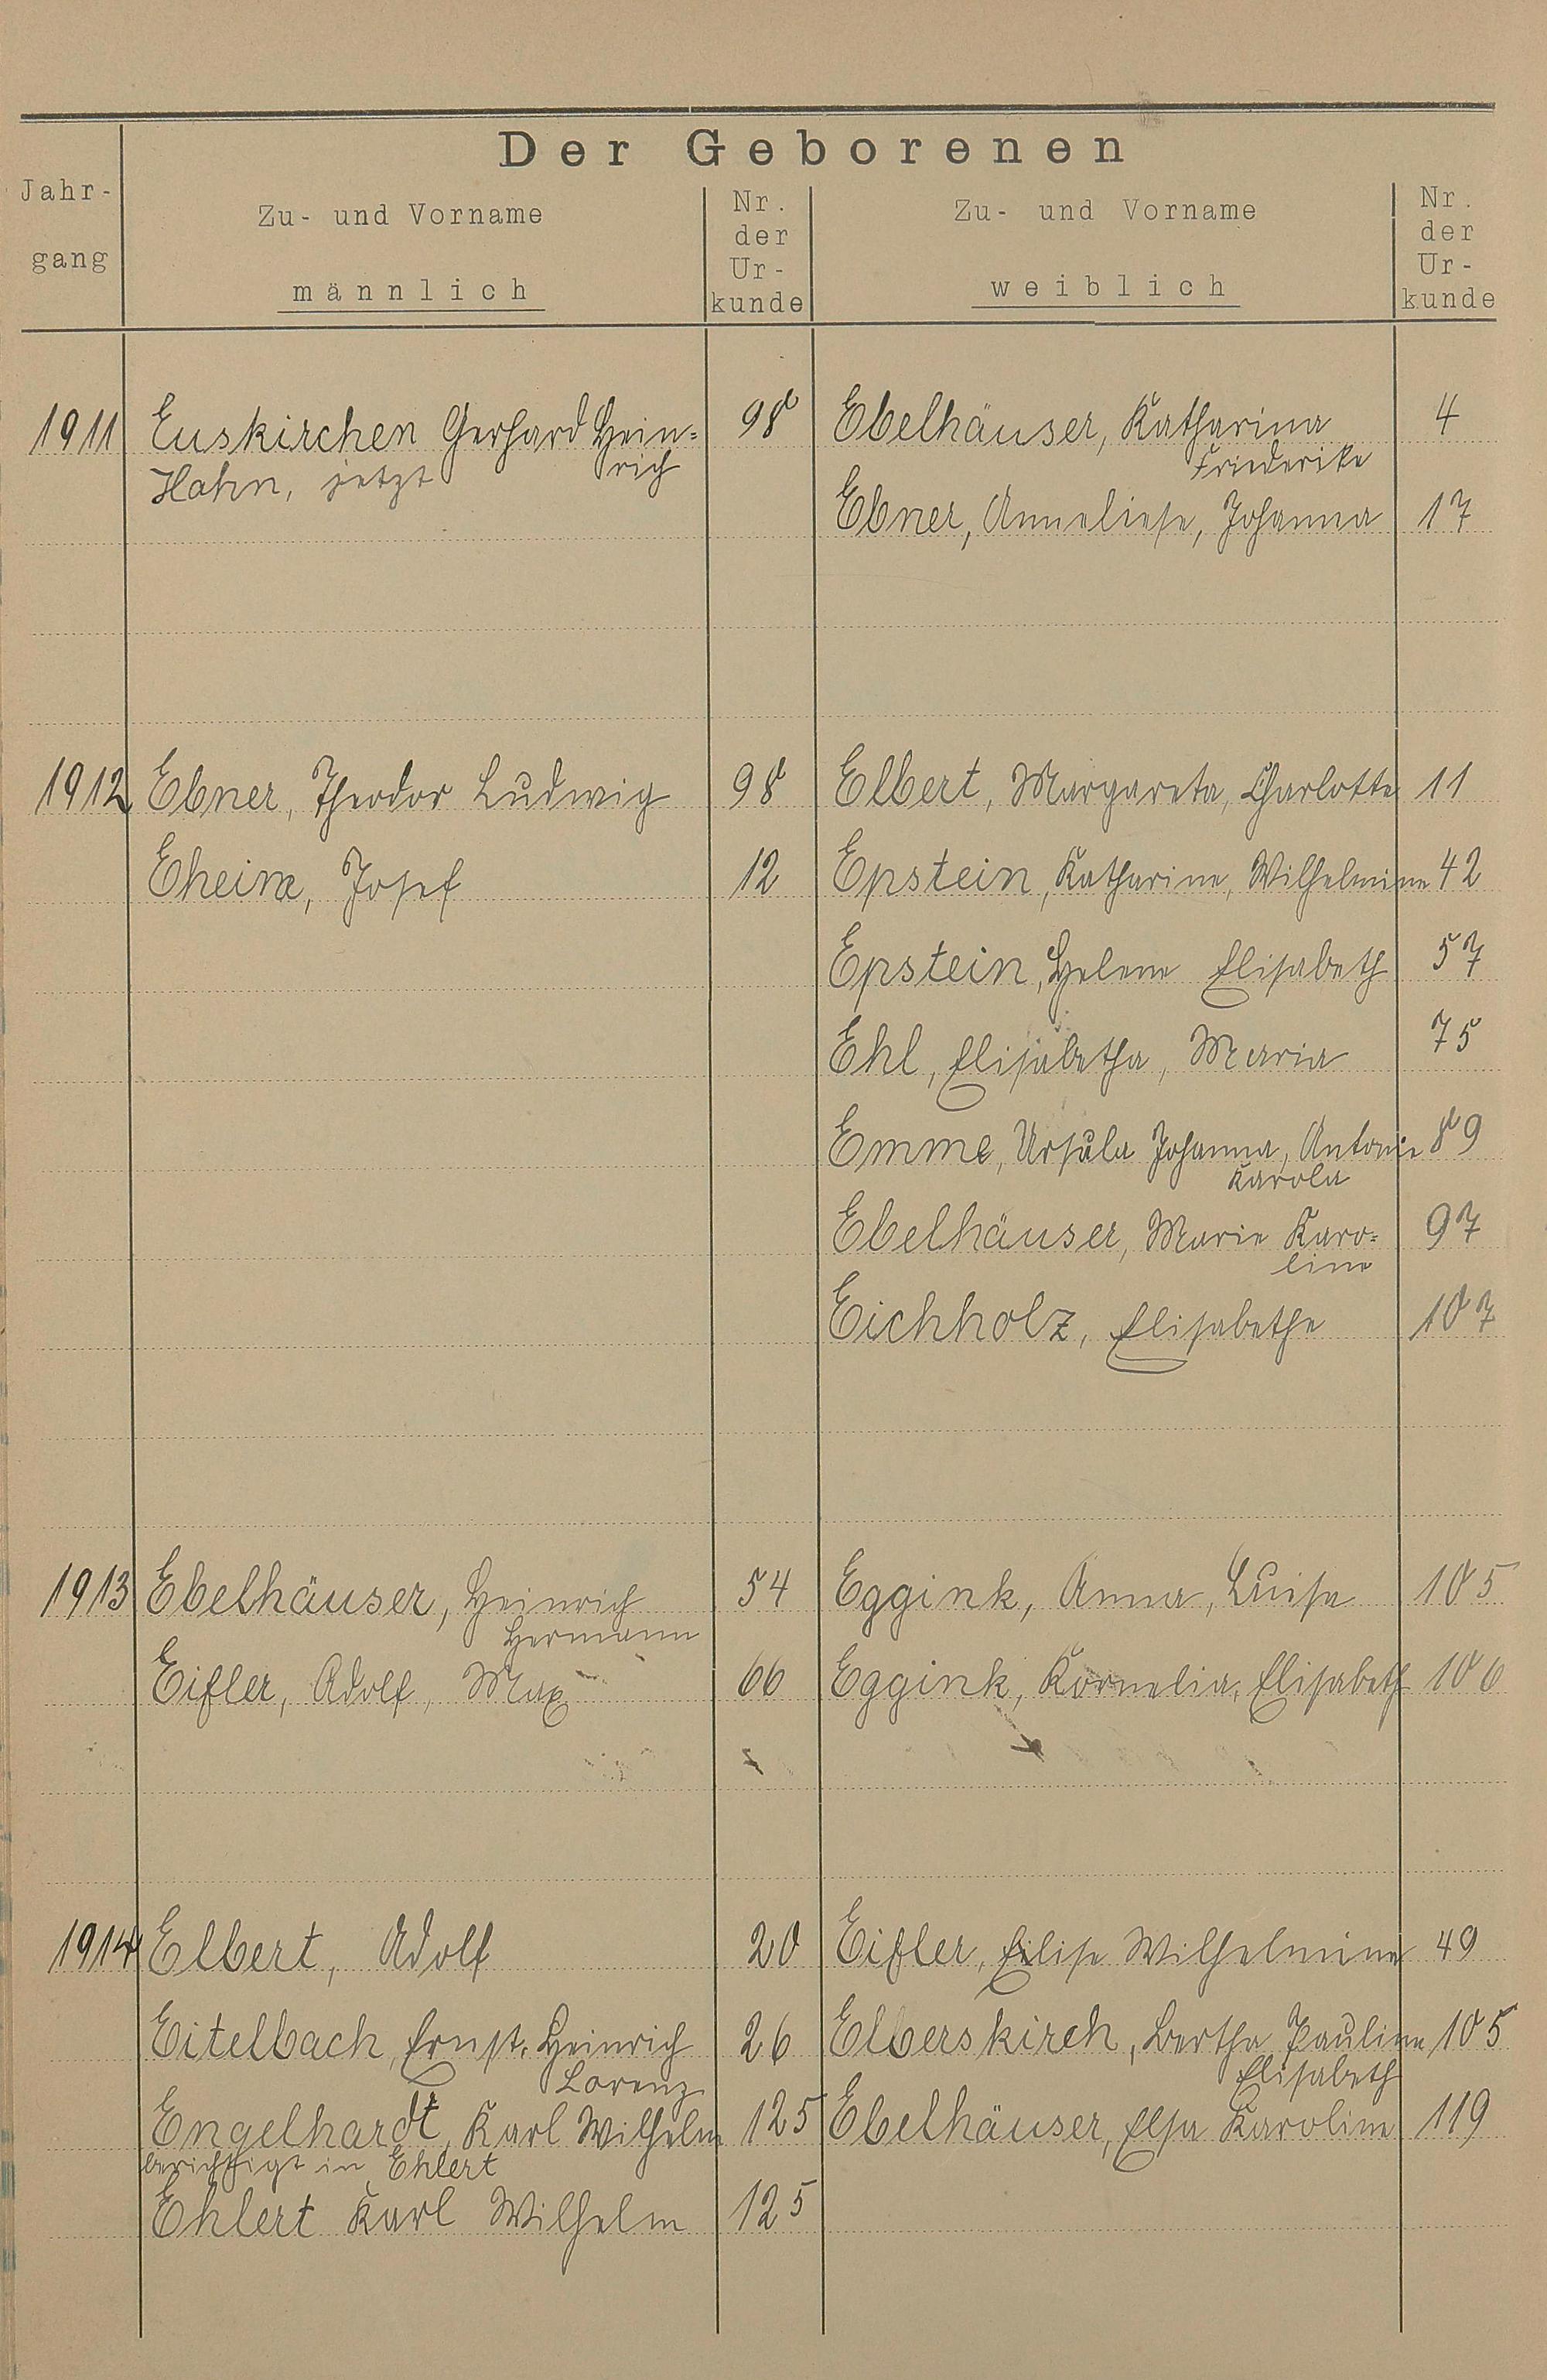 Der Geborenen
Jahr-
gang
Zu- und Vorname
männlich
Nr.
der
Ur-
kunde
Zu- und Vorname
weiblich
Nr.
der
Ur-
kunde
1911 Euskirchen Gerhard Hein= 98 Ebelhäuser, Katharina 4
Hahn, jetzt rich Friederike
Ebner, Anneliese, Johanna 17
1912 Ebner, Theodor Ludwig 98 Elbert, Margareta, Charlotte 11
Eheim, Josef 12 Epstein, Katharine, Wilhelmine 42
Epstein, Helene Elisabeth 57
Ehl, Elisabetha, Maria 75
Emme, Ursula Johanna, Antonie 89
Karola
Ebelhäuser, Marie Karo= 97
line
Eichholz, Elisabethe 107
1913 Ebelhäuser, Heinrich 54 Eggink, Anna, Luise 105
Hermann
Eifler, Adolf, Max 66 Eggink, Kornelia, Elisabeth 106
1914 Elbert, Adolf 20 Eifler, Elise Wilhelmine 49
Eitelbach, Ernst, Heinrich 26 Elberskirch, Bertha Pauline 105
Lorenz Elisabeth
Engelhardt, Karl Wilhelm 125 Ebelhäuser, Elsa Karoline 119
berichtigt in Ehlert
Ehlert Karl Wilhelm 125